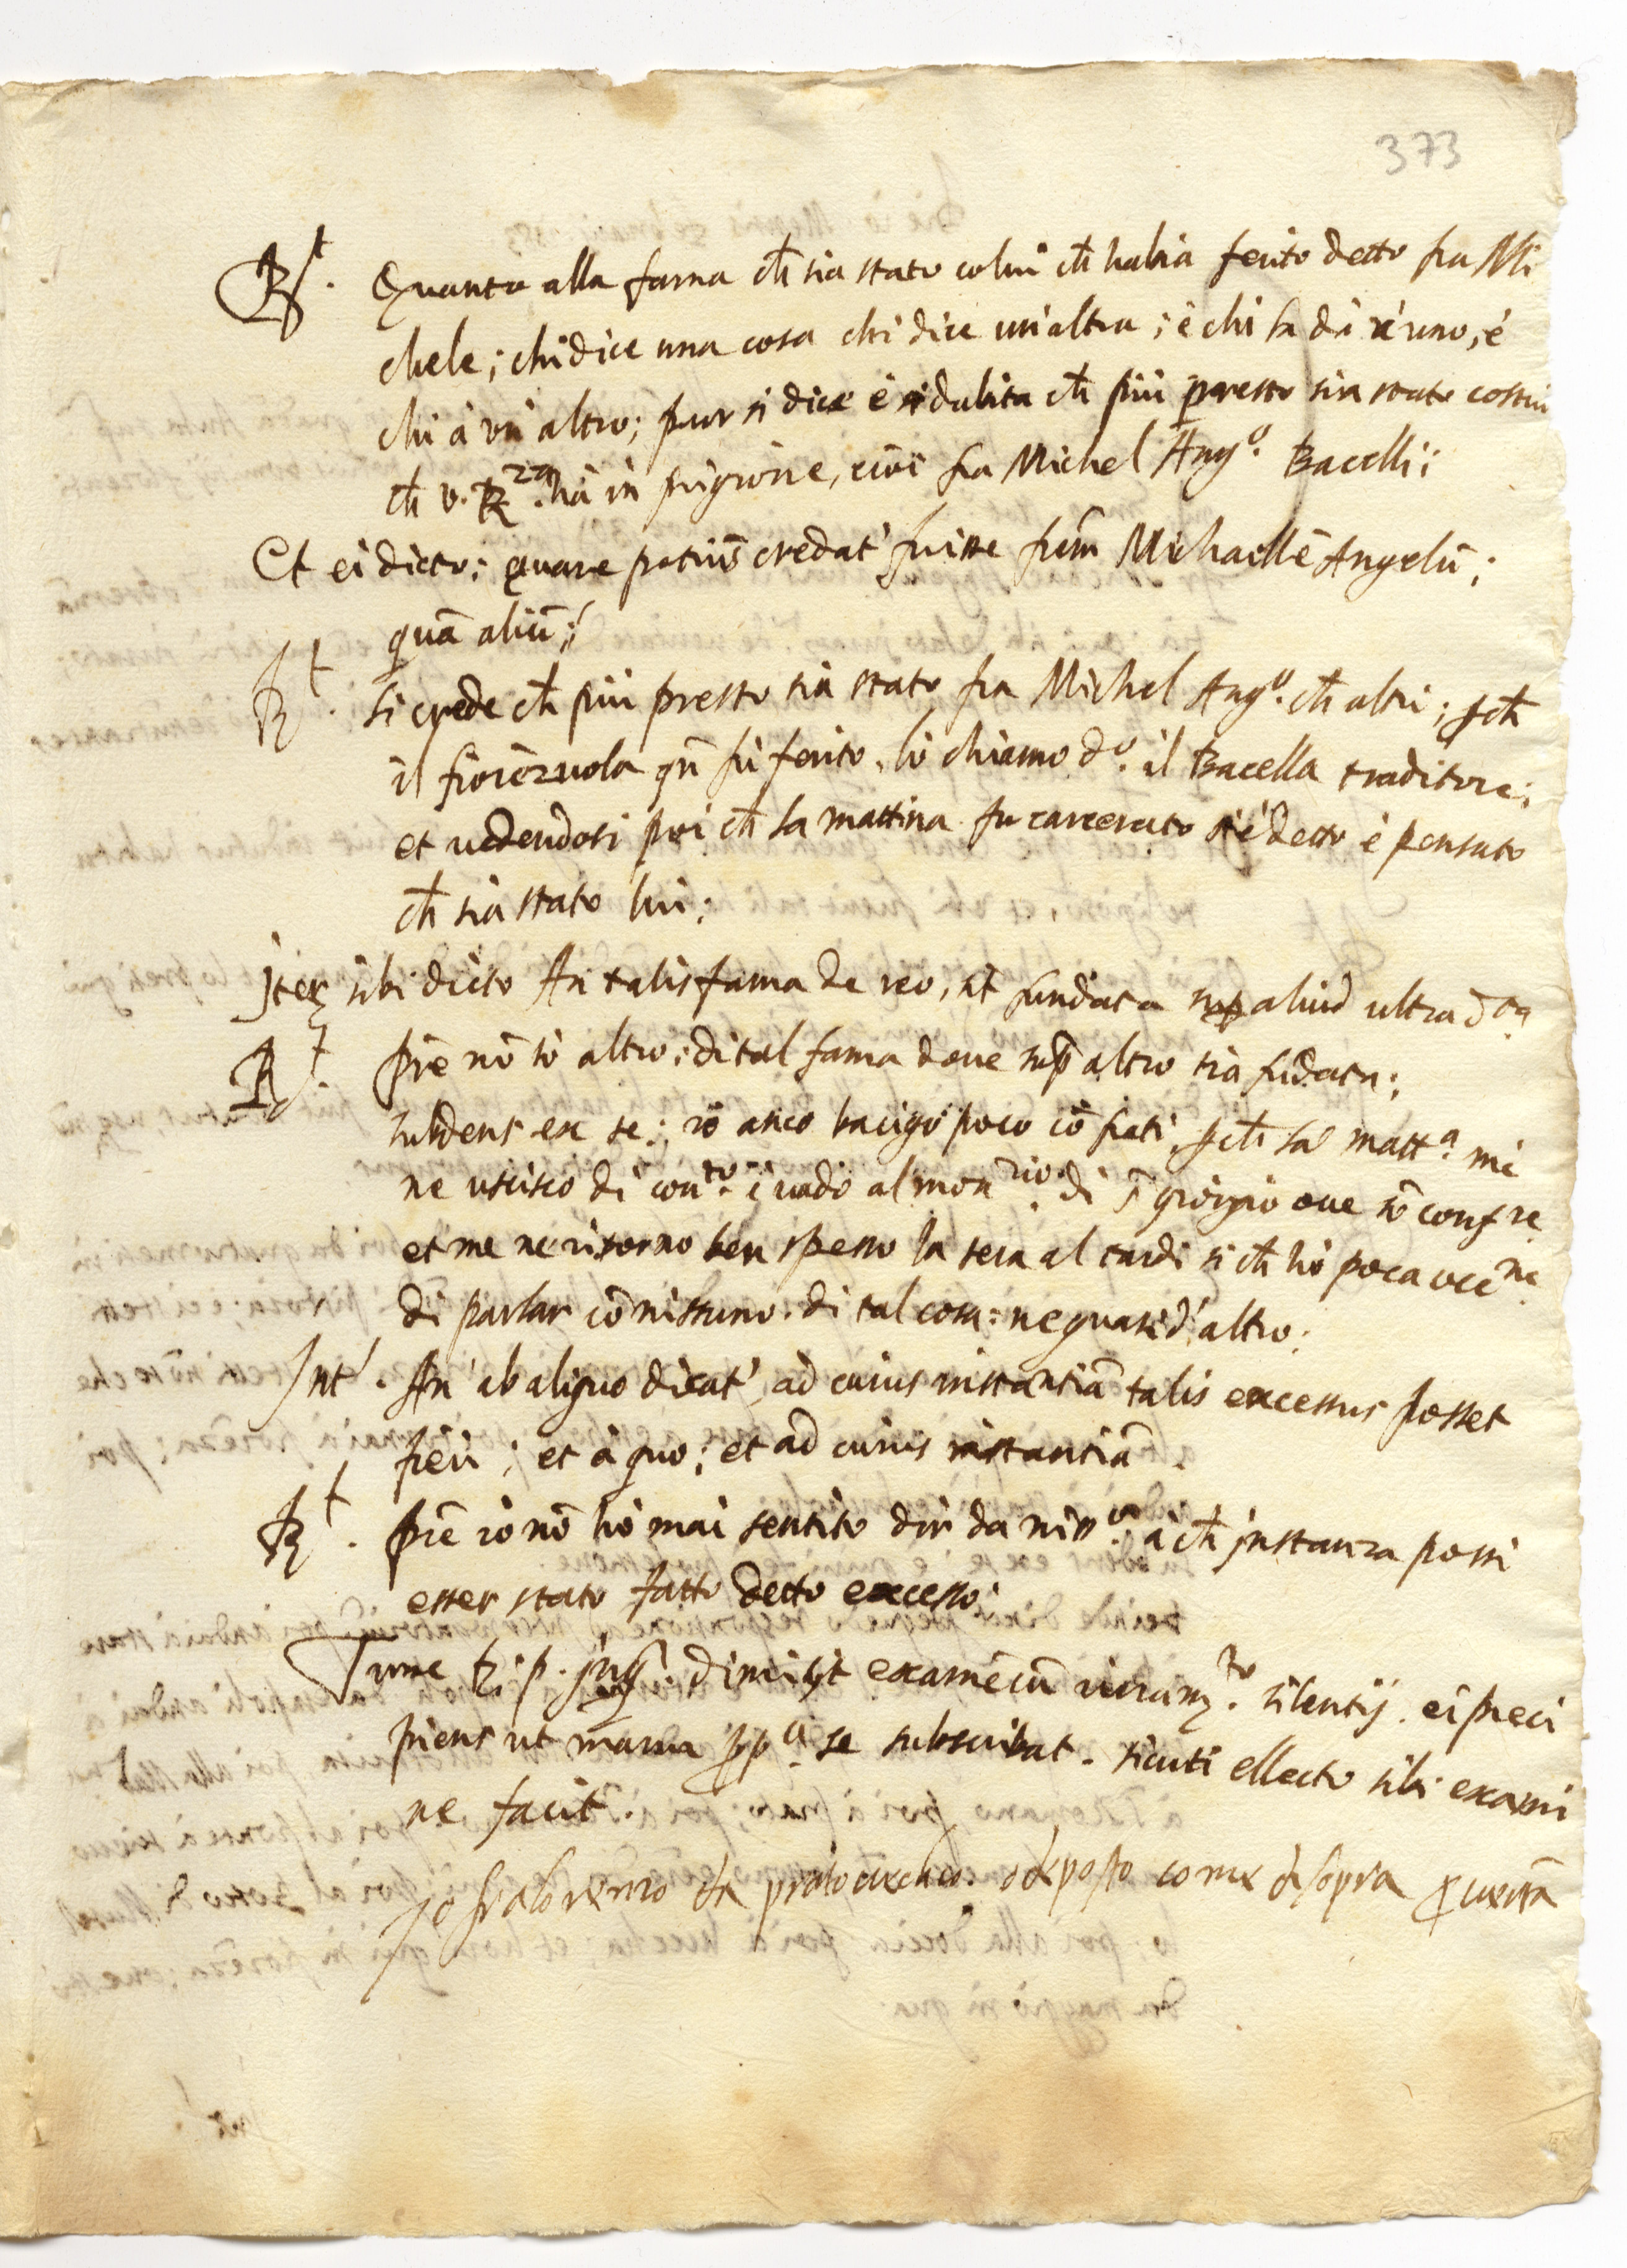 373
Rt. Quanto alla fama ch̃ sia stato colui ch̃ habia ferito detto fra Mi
chele; chi dice una cosa chi dice un'altra; è chi la dà à uno, é
chi à un altro; pur si dice è si dubita ch̃ più presto sia stato costui
ch̃ v. Rza. hà in prigione, cioè fra Michel Angº. Bacelli;
Et ei dicto; quare potius credat' fuisse frẽm Michaelẽ Angelũ;
quã aliũ;
Rt. Si crede ch̃ più presto sia stato fra Michel Angº. ch̃ altri; pch̃
il fiorẽzuola qñ fù ferito, lo chiamò dº. il Bacella traditore;
et vedendosi poi ch̃ la mattina fu carcerato s'é detto è pensato
ch̃ sia stato lui;
Iterũ sibi dicto An talis fama de reo, sit fundata sup aliud ultra dta.
Rt. Prẽ nõ sò altro; di tal fama dove sup̃ altro sia fũdata;
subdens ex se; io anco poco cõ frati, pch̃ la matta. mi
ne uscisco di conto. è vado al monrio. di S. giorgio ove sõ confre.
et me ne ritorno ben spesso la sera al tardi si ch̃ hò poca occne.
di parlar cõ nissuno. di tal cosa: ne quasi d'altro.
Int'. An ab aliquo dicat', ad cuius instantiã talis excessus posset
fieri; et à quo; et ad cuius instantiã.
Rt. Prẽ io nõ hò mai sentito dir da nissº. à ch̃ instanza possi
esser stato fatto detto excesso.
Tunc R. p. Inq. dimisit examẽ cũ iuramto. silentij. ei preci
piens ut manu ppa. se subscribat. sicuti ellecto sibi exami
ne facit.
Io fra lorenzo da prato ò deposto come di sopra p verità